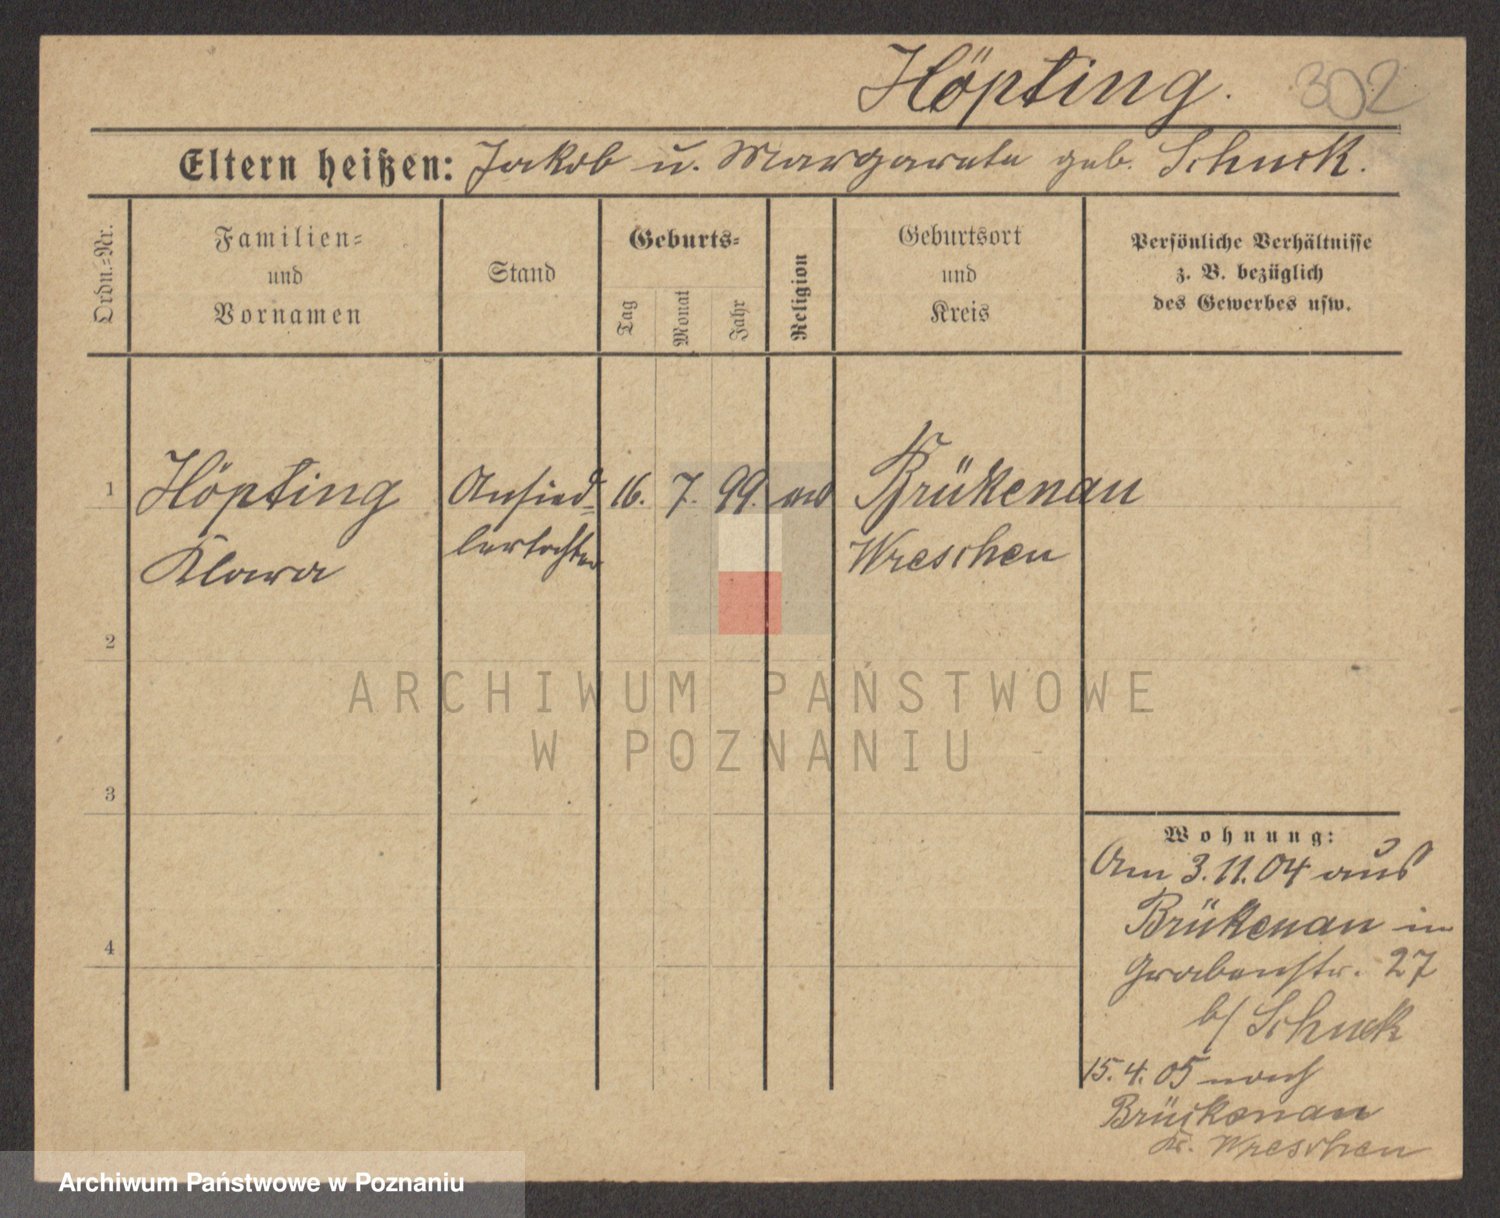 Höpting.
302
Eltern heißen: Jakob u. Margarete geb. Schuck.
Ordn.=Nr.
Familien=
und
Vornamen
Stand
Geburts=
Tag
Monat
Jahr
Religion
Geburtsort
und
Kreis
Persönliche Verhältnisse
z. B. bezüglich
des Gewerbes usw.
1
Höpting Ansied= 16. 7. 99. Brükenau
Klara lertochter Wreschen
2
ARCHIWUM PAŃSTWOWE
W POZNANIU
3
Wohnung:
Am 3.11.04 aus
Brükenau in
4
Grabenstr. 27
b/ Schuck
15.4.05 nach
Brückenau
Kr. Wreschen
Archiwum Państwowe w Poznaniu